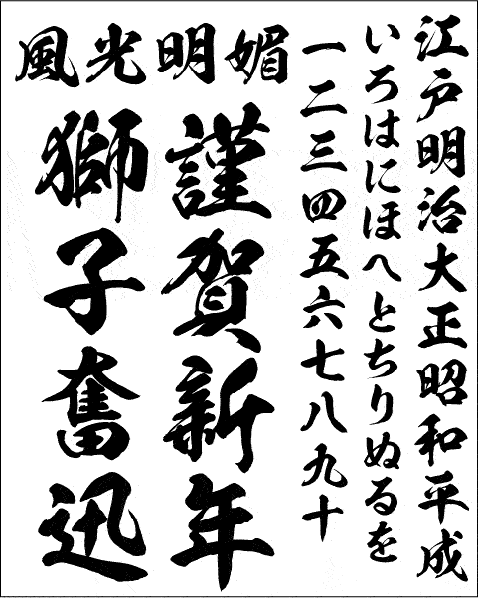 江戸明治大正昭和平成
いろはにほへとちりぬるを
一二三四五六七八九十
風光明媚
謹賀新年
獅子奮迅